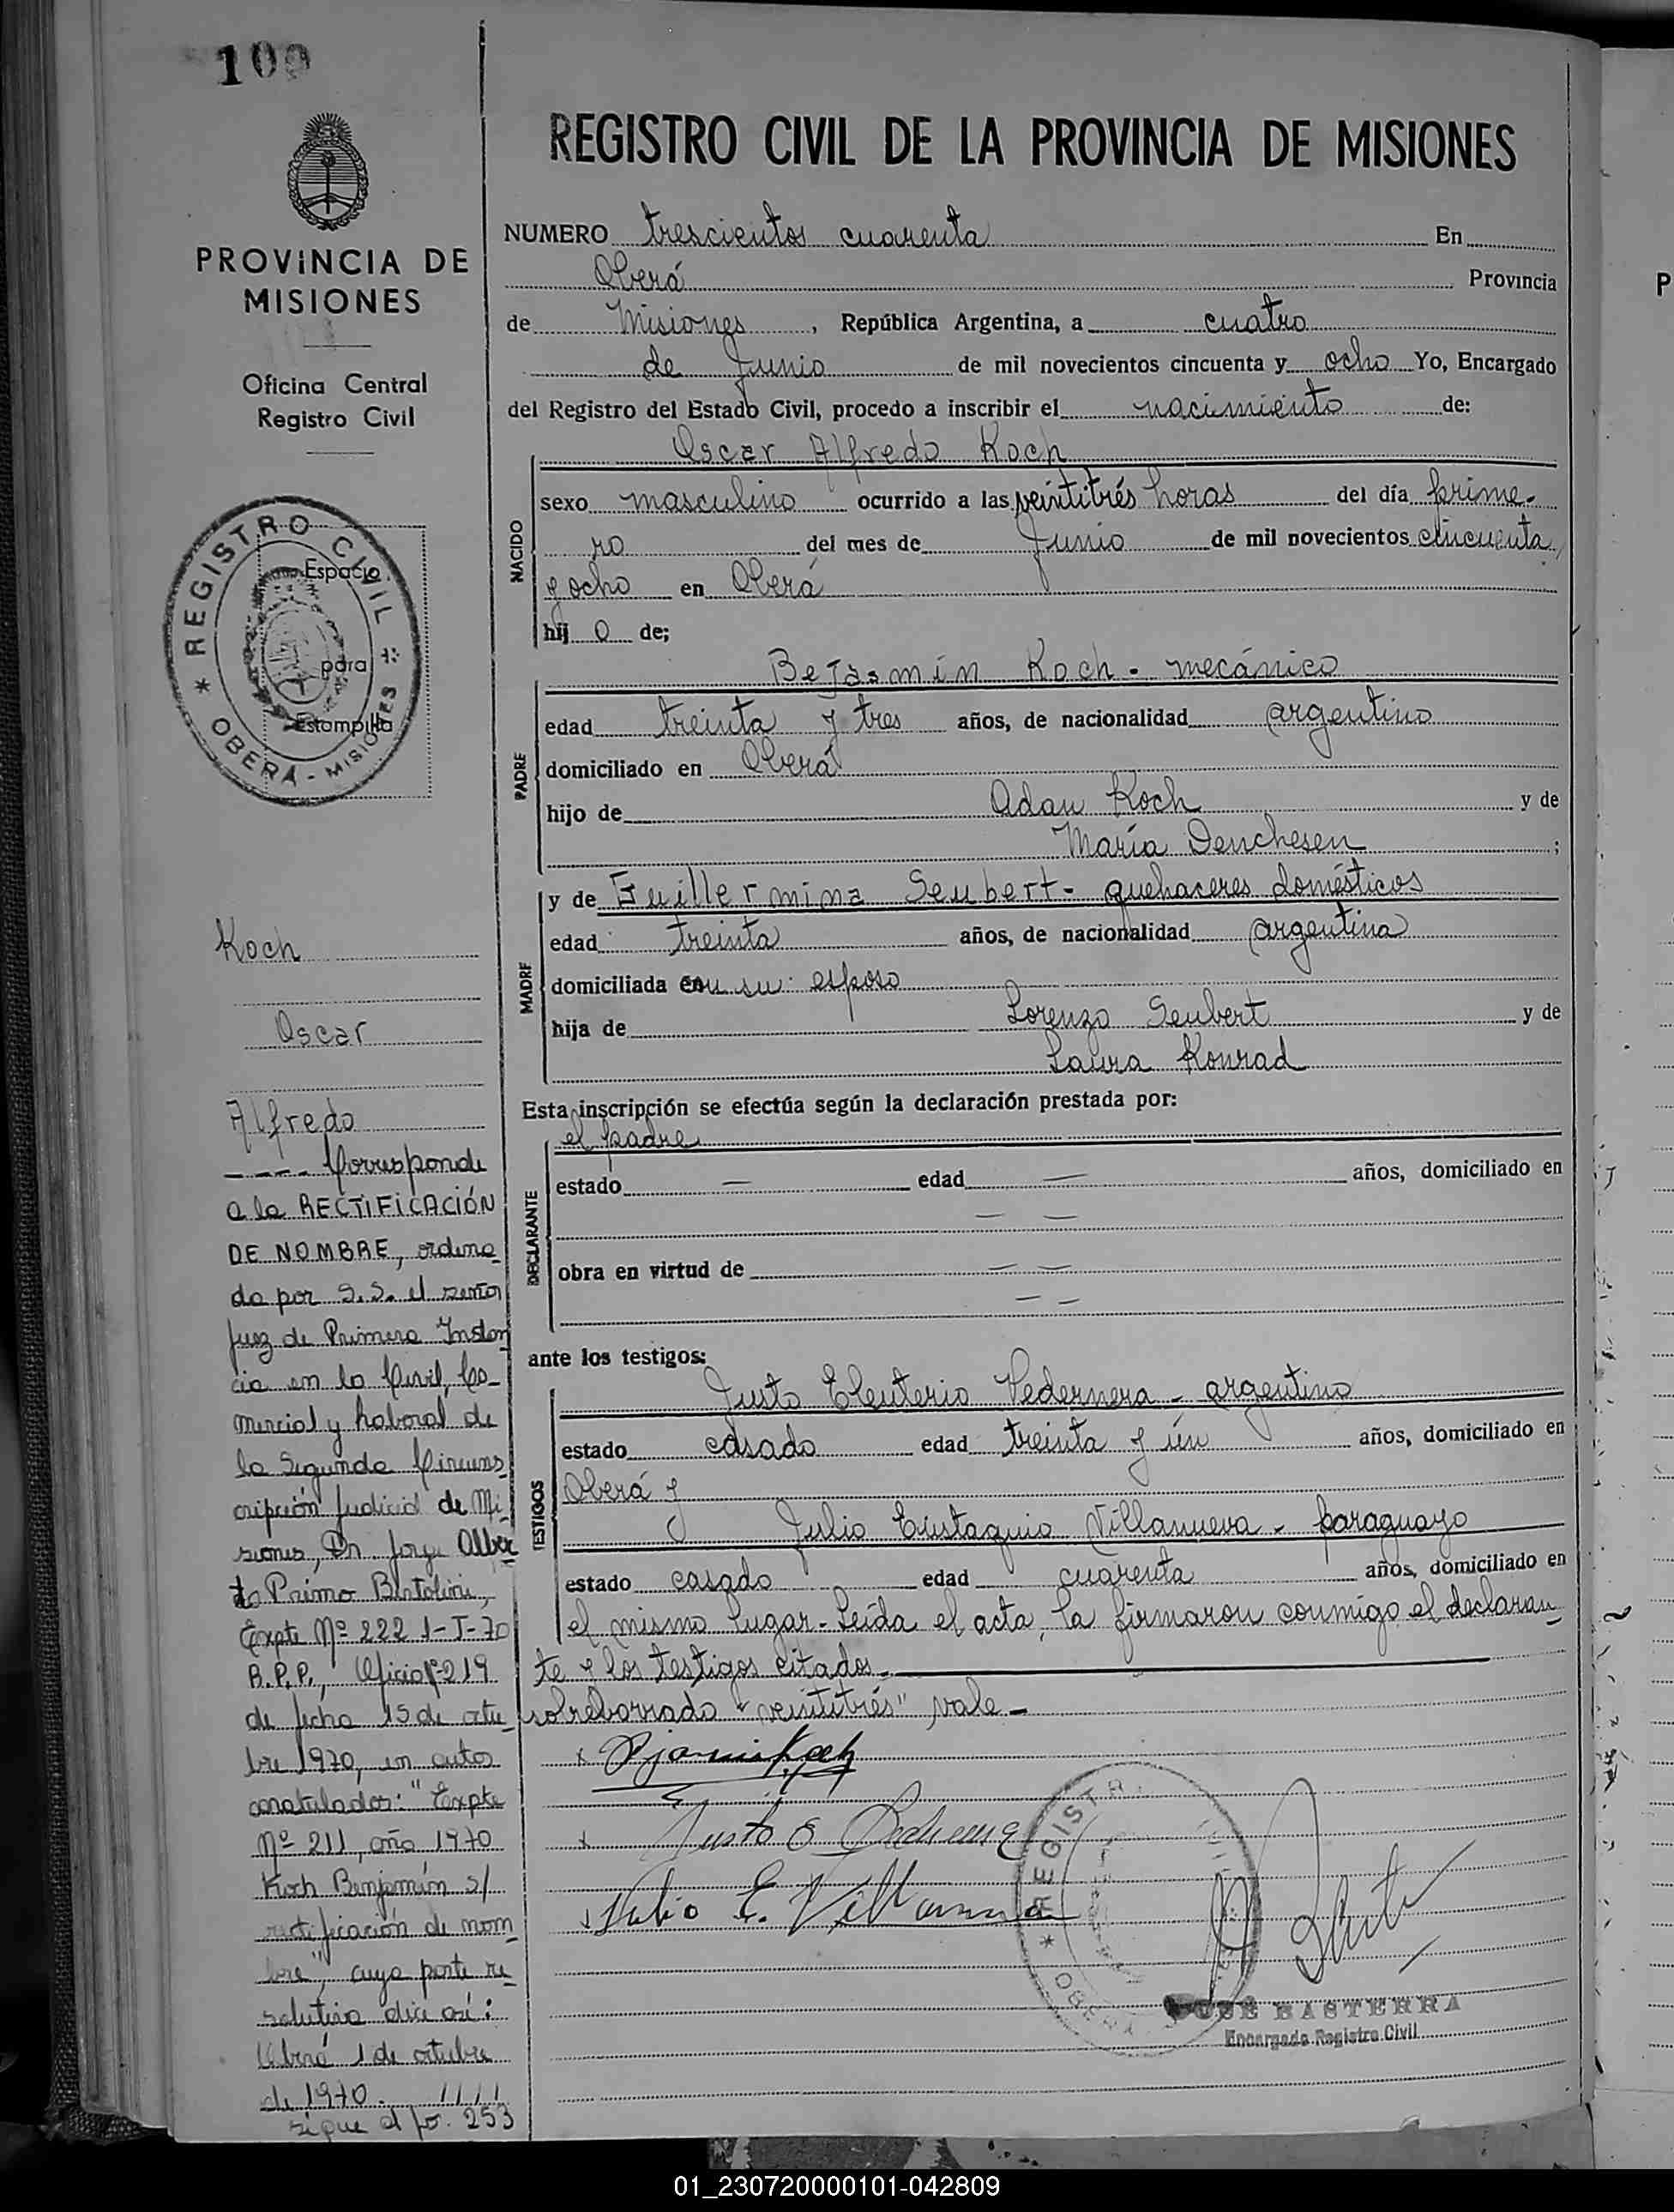 100
PROVINCIA DE
MISIONES
Oficina Central
Registro Civil
REGISTRO CIVIL
* OBERÁ - MISIONES *
Espacio
para
Estampilla
Koch
Oscar
Alfredo
---- Corresponde
a la RECTIFICACIÓN
DE NOMBRE, ordena_
da por S.S. el señor
Juez de Primera Instan
cia en lo Civil, Co_
mercial y Laboral de
la Segunda Circuns_
cripción Judicial de Mi_
siones, Dr. Jorge Alber_
to Primo Bertolini,
Expte Nº 222 1-J-70
B.P.P., Oficio Nº 219
de fecha 15 de octu_
bre 1970, en autos
caratulados: "Expte
Nº 211, año 1970
Koch Benjamín s/
rectificación de nom_
bre", cuya parte re_
solutiva dice así:
Oberá 1 de octubre
de 1970. ////
sigue al fo. 253
REGISTRO CIVIL DE LA PROVINCIA DE MISIONES
NUMERO trescientos cuarenta En
Oberá Provincia
de Misiones, República Argentina, a cuatro
de Junio de mil novecientos cincuenta y ocho Yo, Encargado
del Registro del Estado Civil, procedo a inscribir el nacimiento de:
Oscar Alfredo Koch
NACIDO
sexo masculino ocurrido a las veintitrés horas del día prime-
ro del mes de Junio de mil novecientos cincuenta
y ocho en Oberá
hij o de;
PADRE
Bejasmin Koch - mecánico
edad treinta y tres años, de nacionalidad argentino
domiciliado en Oberá
hijo de Adan Koch y de
María Denchesen ;
MADRE
y de Guillermina Seubert - quehaceres domésticos
edad treinta años, de nacionalidad argentina
domiciliada con su esposo
hija de Lorenzo Seubert y de
Laura Konrad
Esta inscripción se efectúa según la declaración prestada por:
DECLARANTE
el padre
estado — edad — años, domiciliado en
— —
obra en virtud de — —
— —
ante los testigos:
TESTIGOS
Justo Eleuterio Pedernera - argentino
estado casado edad treinta y un años, domiciliado en
Oberá y
Julio Eustaquio Villanueva - paraguayo
estado casado edad cuarenta años, domiciliado en
el mismo lugar - Leída el acta, la firmaron conmigo el declaran_
te y los testigos citados.
sobreborrado "veintitrés" vale -
x Bjamin Koch
x Justo E Pedernera
x Julio E. Villanueva
REGISTR
* OBERÁ
JOSÉ BASTERRA
Encargado Registro Civil
P
01_230720000101-042809